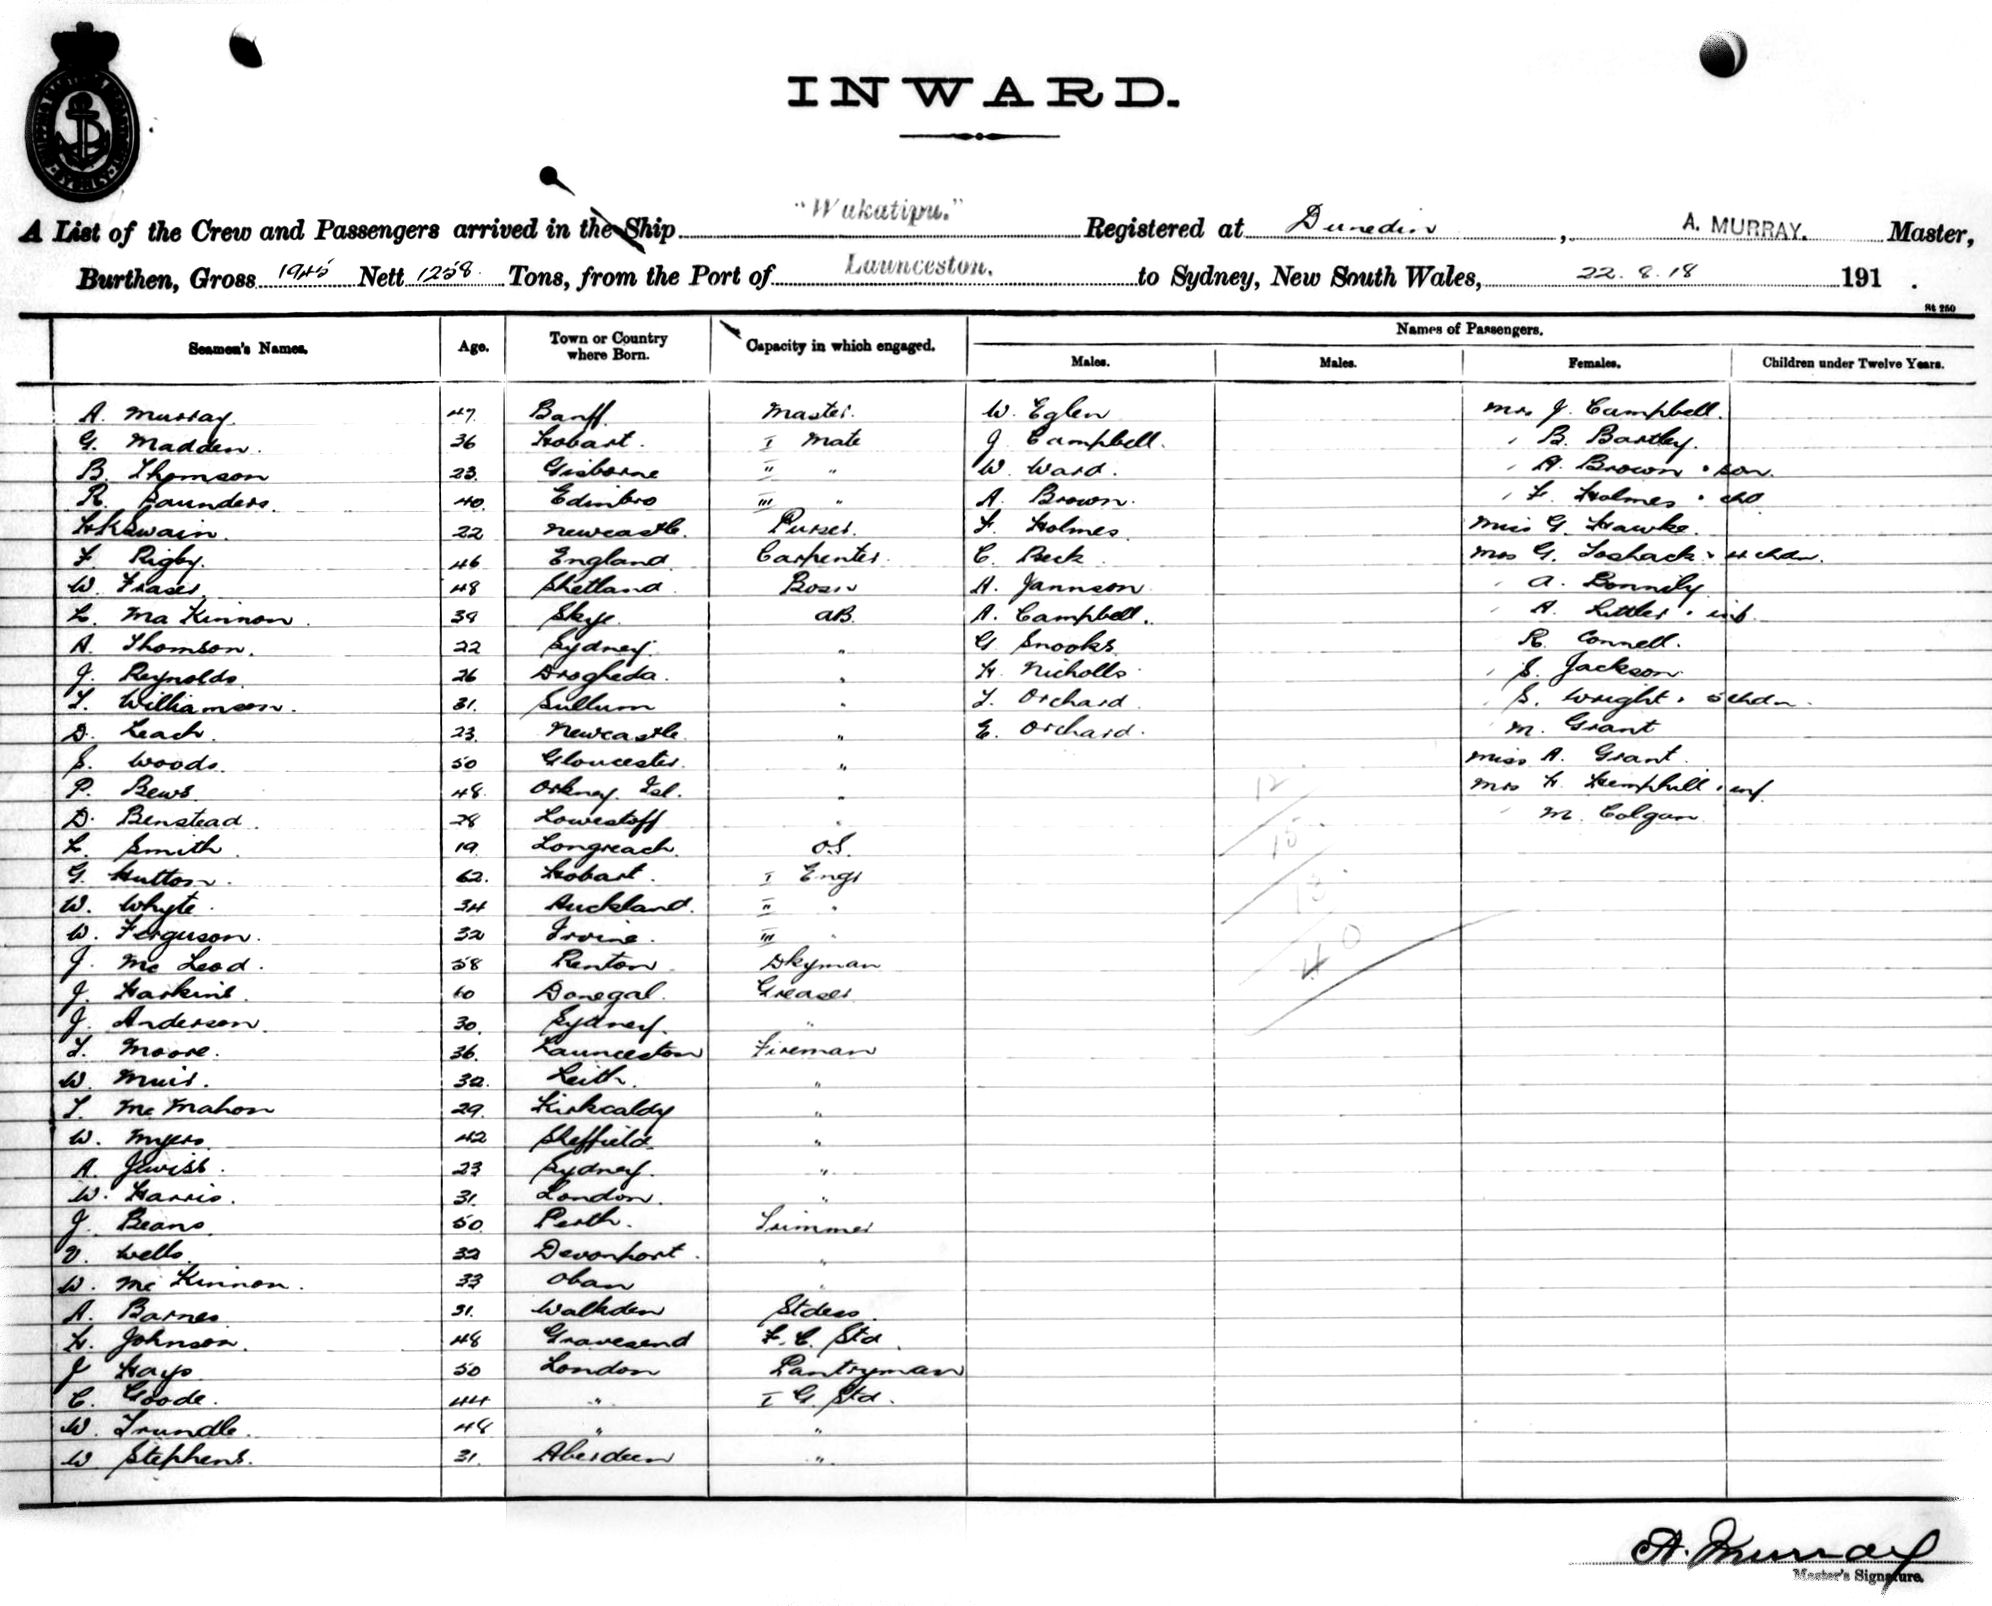 INWARD.
A List of the Crew and Passengers arrived in the Ship "Wakatipu." Registered at Dunedin, A. MURRAY. Master,
Burthen, Gross 1945 Nett 1258 Tons, from the Port of Launceston. to Sydney, New South Wales, 22.8.18 191 .
St 250
Seamen's Names. Age. Town or Country where Born. Capacity in which engaged. Names of Passengers.
Males. Males. Females. Children under Twelve Years.
A. Murray. 47. Banff. Master. W. Eglen Mrs J. Campbell.
G. Madden. 36 Hobart. I Mate J. Campbell. " B. Bartley.
B. Thomson 23. Gisborne II " W. Ward. " A. Brown & son.
R. Saunders. 40. Edinbro III " A. Brown. " F. Holmes & chd
H K Swain. 22 Newcastle. Purser. F. Holmes. Miss G. Hawke.
F. Rigby. 46 England. Carpenter. C. Peck. Mrs G. Loshack & 4 chdn.
W. Fraser. 48 Shetland. Bosn A. Jannson. " A. Donnely
L. MaKinnon. 39 Skye. AB. A. Campbell. " A. Littler & inf.
A. Thomson. 22 Sydney. " G. Snooks. R. Connell.
J. Reynolds. 26 Drogheda. " H. Nicholls. " S. Jackson.
T. Williamson. 31. Sullum " T. Orchard. " S. Wright & 5 chdn.
D. Leach. 23. Newcastle. " E. Orchard. " M. Grant
S. Woods. 50 Gloucester. " Miss A. Grant.
P. Bews. 48. Orkney Isl. " 12 Mrs H. Hemphill & inf.
D. Benstead. 28 Lowestoff " " M. Colgan
L. Smith. 19. Longreach. O.S. 15
G. Hutton. 62. Hobart. I Engr
W. Whyte. 34 Auckland. II " 13
W. Ferguson. 32 Irvine. III "
J. McLeod. 58 Renton. Dkyman 40
J. Harkins. 60 Donegal. Greaser
J. Anderson. 30. Sydney. "
T. Moore. 36. Launceston Fireman
W. Muir. 32. Leith. "
T. McMahon 29. Kirkcaldy "
W. Myers. 42 Sheffield. "
A. Jewiss. 23 Sydney. "
W. Harris. 31. London. "
J. Beans. 50 Perth. Trimmer
V. Wells. 32 Devonport. "
W. McKinnon. 33 Oban "
A. Barnes. 31. Walkden Stdess.
H. Johnson. 48 Gravesend F.C. Std.
J Hays. 50 London Pantryman
C. Goode. 44 " I G. Std.
W. Trundle. 48 " "
W. Stephens. 31. Aberdeen "
A. Murray
Master's Signature.